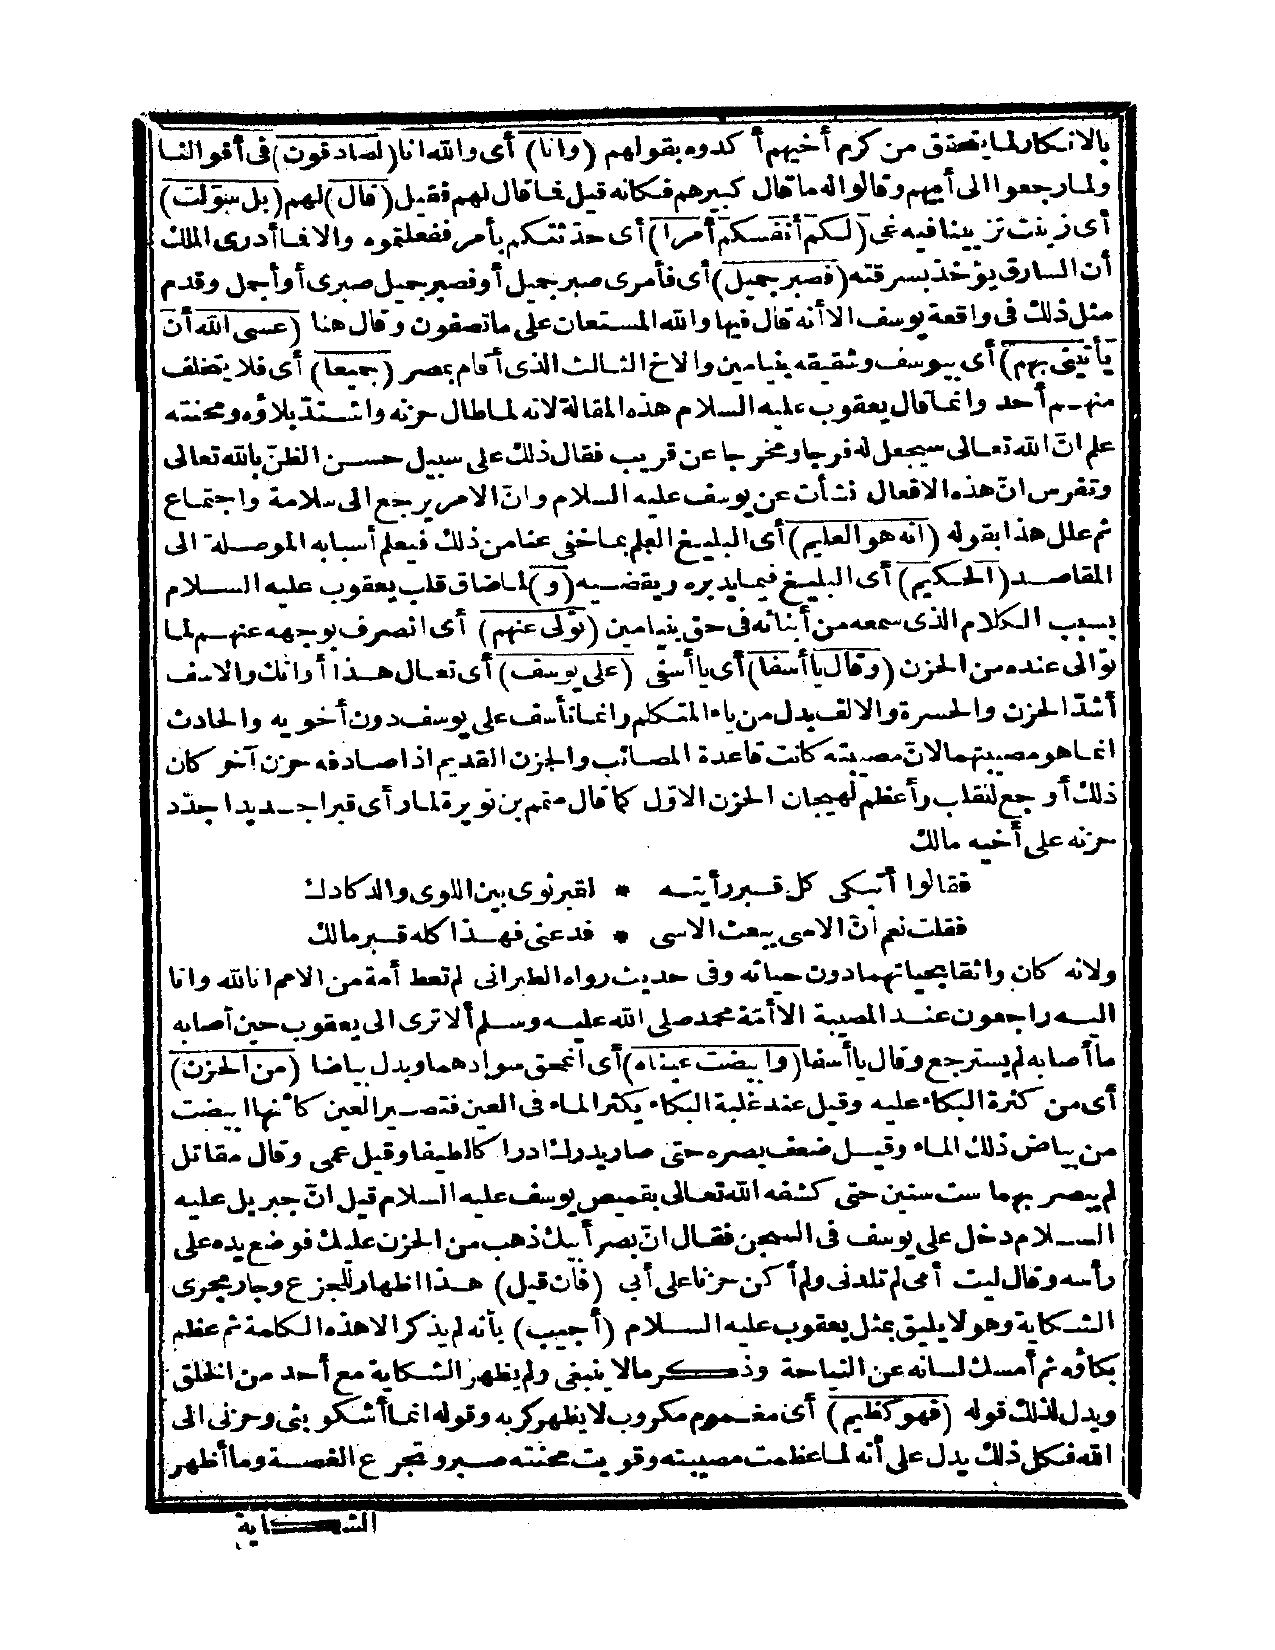 بالانكار لما يتحقق من كرم أخيهم أكدوه بقولهم (وانا) أى والله انا (لصادقون) فى أقوالنا
ولما رجعوا الى أبيهم وقالوا له ما قال كبيرهم فكانه قيل فما قال لهم فقيل (قال) لهم (بل سوّلت)
أى زينت تزيينا فيه غى (لكم أنفسكم أمرا) أى حدثتكم بأمر ففعلتموه والا فما أدرى الملك
أن السارق يؤخذ بسرقته (فصبر جميل) أى فأمرى صبر جميل أو فصبر جميل صبرى أو أجمل وقدم
مثل ذلك فى واقعة يوسف الا أنه قال فيها والله المستعان على ما تصفون وقال هنا (عسى الله أن
يأتينى بهم) أى بيوسف وشقيقه بنيامين والاخ الثالث الذى أقام بمصر (جميعا) أى فلا يتخلف
منهم أحد وانما قال يعقوب عليه السلام هذه المقالة لانه لما طال حزنه واشتدّ بلاؤه ومحنته
علم انّ الله تعالى سيجعل له فرجا ومخرجا عن قريب فقال ذلك على سبيل حسن الظنّ بالله تعالى
وتفرس انّ هذه الافعال نشأت عن يوسف عليه السلام وانّ الامر يرجع الى سلامة واجتماع
ثم علل هذا بقوله (انه هو العليم) أى البليغ العلم بما خفى عنا من ذلك فيعلم أسبابه الموصلة الى
المقاصد (الحكيم) أى البليغ فيما يدبره ويقضيه (و) لما ضاق قلب يعقوب عليه السلام
بسبب الكلام الذى سمعه من أبنائه فى حق بنيامين (تولى عنهم) أى انصرف بوجهه عنهم لما
توالى عنده من الحزن (وقال يا أسفا) أى يا أسفى (على يوسف) أى تعال هذا أوانك والاسف
أشدّ الحزن والحسرة والالف بدل من ياء المتكلم وانما تأسف على يوسف دون أخويه والحادث
انما هو مصيبتهما لانّ مصيبته كانت قاعدة المصائب والحزن القديم اذا صادفه حزن آخر كان
ذلك أوجع للقلب وأعظم لهيجان الحزن الاوّل كما قال متمم بن نويرة لما رأى قبرا جديدا جدّد
حزنه على أخيه مالك
فقالوا أتبكى كل قبر رأيته * لقبر ثوى بين اللوى والدكادك
فقلت نعم انّ الاسى يبعث الاسى * فدعنى فهذا كله قبر مالك
ولانه كان واثقا بحياتهما دون حياته وفى حديث رواه الطبرانى لم تعط أمة من الامم انا لله وانا
اليه راجعون عند المصيبة الا أمّة محمد صلى الله عليه وسلم ألا ترى الى يعقوب حين أصابه
ما أصابه لم يسترجع وقال يا أسفا (وابيضت عيناه) أى انمحق سوادهما وبدل بياضا (من الحزن)
أى من كثرة البكاء عليه وقيل عند غلبة البكاء يكثر الماء فى العين فتصير العين كأنها ابيضت
من بياض ذلك الماء وقيل ضعف بصره حتى صار يدرك ادراكا لطيفا وقيل عمى وقال مقاتل
لم يبصر بهما ست سنين حتى كشفه الله تعالى بقميص يوسف عليه السلام قيل انّ جبريل عليه
السلام دخل على يوسف فى السجن فقال انّ بصر أبيك ذهب من الحزن عليك فوضع يده على
رأسه وقال ليت أمى لم تلدنى ولم أكن حزنا على أبى (فان قيل) هذا اظهار للجزع وجار مجرى
الشكاية وهو لا يليق بمثل يعقوب عليه السلام (أجيب) بأنه لم يذكر الا هذه الكلمة ثم عظم
بكاؤه ثم أمسك لسانه عن النياحة وذكر ما لا ينبغى ولم يظهر الشكاية مع أحد من الخلق
ويدل لذلك قوله (فهو كظيم) أى مغموم مكروب لا يظهر كربه وقوله انما أشكو بثى وحزنى الى
الله فكل ذلك يدل على أنه لما عظمت مصيبته وقويت محنته صبر وتجرع الغصة وما أظهر
الشكاية